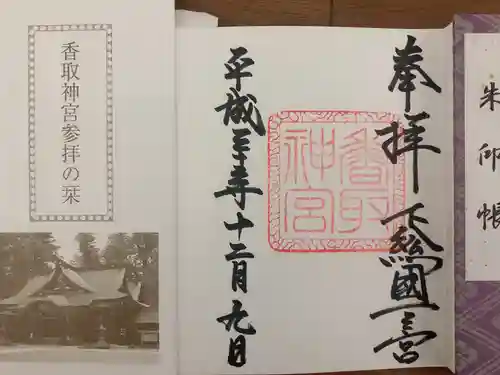 香取神宮参拝の栞
奉拝
下総國一宮
香取
神宮
平成三十年十二月九日
朱印帳